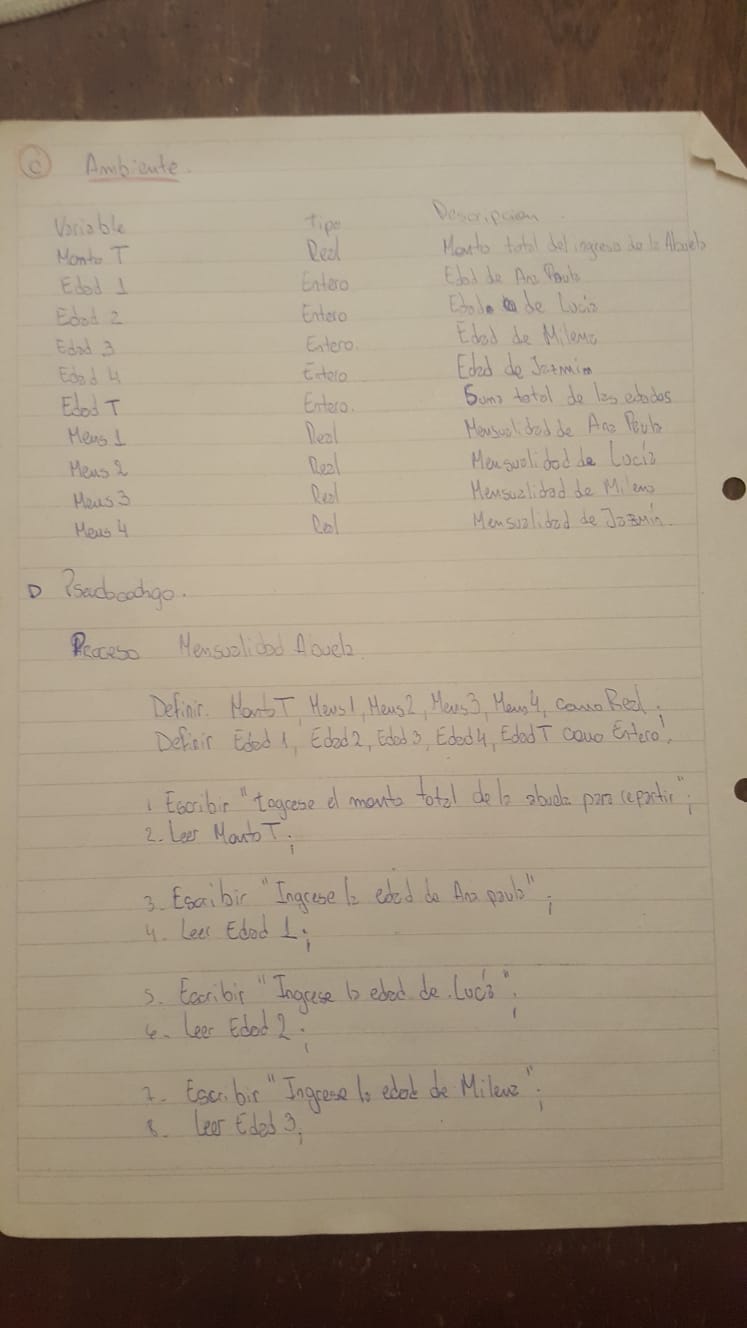 C Ambiente.
Variable Tipo Descripcion
Monto T Real Monto total del ingreso de la Abuela
Edad 1 Entero Edad de Ana Paula
Edad 2 Entero Edad de Lucía
Edad 3 Entero. Edad de Milena
Edad 4 Entero Edad de Jazmim
Edad T Entero. Suma total de las edades
Mens 1 Real Mensualidad de Ana Paula
Mens 2 Real Mensualidad de Lucía
Mens 3 Real Mensualidad de Milena
Mens 4 Real Mensualidad de Jazmín.
D Pseudocodigo.
Proceso Mensualidad Abuela
Definir. Monto T, Mens 1, Mens 2, Mens 3, Mens 4, como Real.
Definir Edad 1, Edad 2, Edad 3, Edad 4, Edad T como Entero;
1. Escribir "Ingrese el monto total de la abuela para repartir";
2. Leer Monto T;
3. Escribir "Ingrese la edad de Ana paula";
4. Leer Edad 1;
5. Escribir "Ingrese la edad de Lucía";
6. Leer Edad 2;
7. Escribir "Ingrese la edad de Milena";
8. Leer Edad 3;